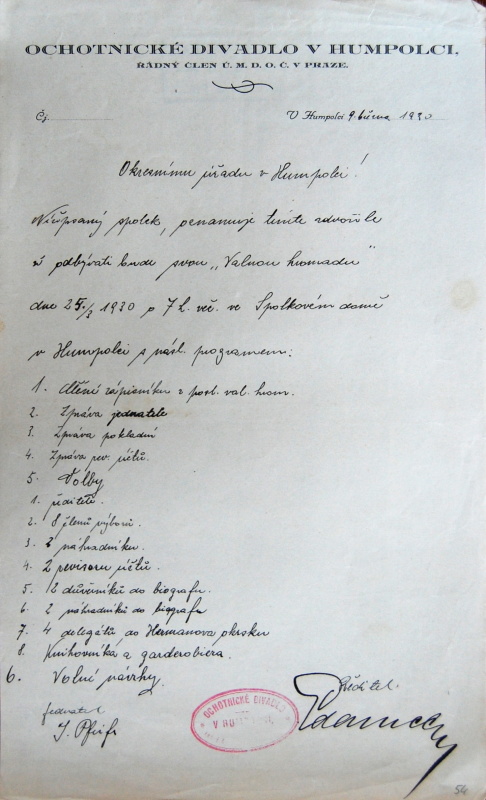 OCHOTNICKÉ DIVADLO V HUMPOLCI,
ŘÁDNÝ ČLEN Ú. M. D. O. Č. V PRAZE.
Čj.
V Humpolci 9. března 1930
Okresnímu úřadu v Humpolci!
Nížepsaný spolek, oznamuje tímto zdvořile
že odbývati bude svou „Valnou hromadu"
dne 25./3 1930 o 7 h. več. ve Spolkovém domě
v Humpolci s násl. programem:
1. Čtění zápisníku z posl. val. hrom.
2. Zpráva jednatele
3. Zpráva pokladní
4. Zpráva rev. účtů.
5. Volby
1. ředitele.
2. 8 členů výboru.
3. náhradníků.
4. 2 revisorů účtů.
5. 12 důvěrníků do biografu.
6. 2 náhradníků do biografu
7. 4 delegátů do Heřmanova okrsku
8. Knihovníka a garderobiera.
6. Volné návrhy.
jednatel
ředitel.
OCHOTNICKÉ DIVADLO
V HUMPOLCI,
54